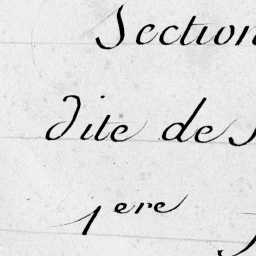 Section
dite de
1ere